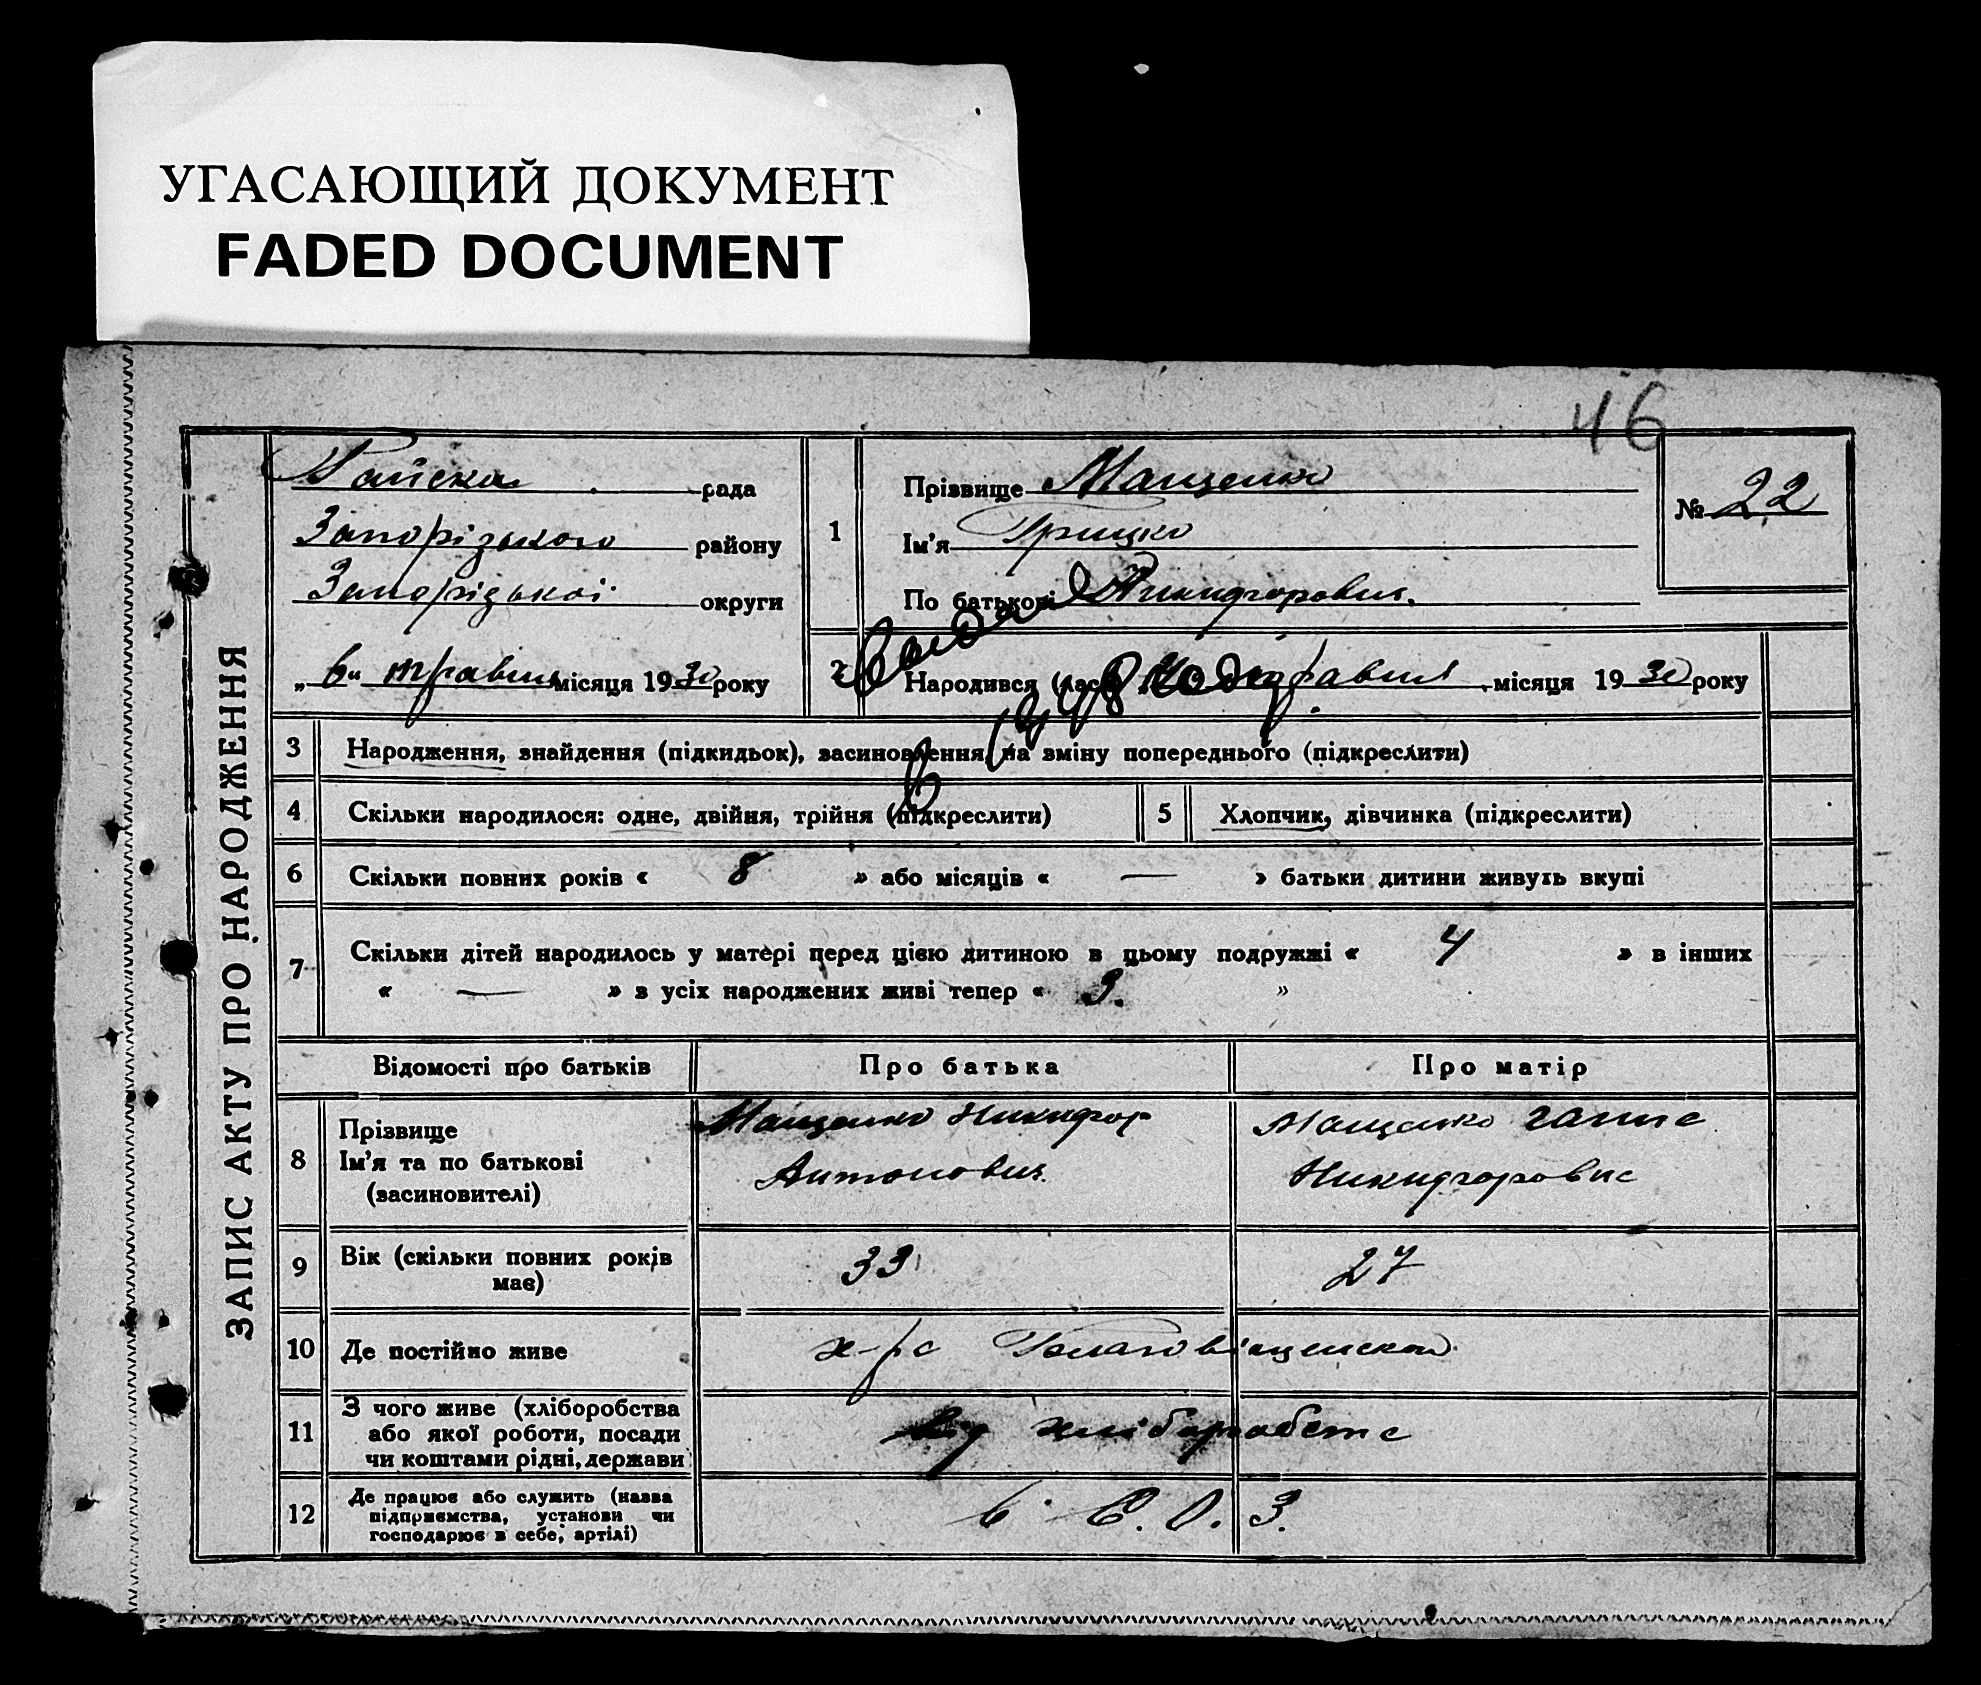 УГАСАЮЩИЙ ДОКУМЕНТ
FADED DOCUMENT
46
ЗАПИС АКТУ ПРО НАРОДЖЕННЯ
рада
Запорізького району
Запорізької округи
„6" травня місяця 1930 року
1
Прізвище Мащенко
Ім'я Грицко
По батькові Никифорович.
№ 22
2 Народився (лась) травня місяця 1930 року
в 1948 году
3 Народження, знайдення (підкидьок), засиновлення, на зміну попереднього (підкреслити)
4 Скільки народилося: одне, двійня, трійня (підкреслити)
5 Хлопчик, дівчинка (підкреслити)
6 Скільки повних років « 8 » або місяців « — » батьки дитини живуть вкупі
7 Скільки дітей народилось у матері перед цією дитиною в цьому подружжі « 4 » в інших
« — » в усіх народжених живі тепер « 3. »
Відомості про батьків Про батька Про матір
8 Прізвище
Ім'я та по батькові
(засиновителі)
Мащенко Никифор
Антонович
Мащенко
9 Вік (скільки повних років
має)
33 27
10 Де постійно живе
11 З чого живе (хліборобства
або якої роботи, посади
чи коштами рідні, держави
від
12 Де працює або служить (назва
підприємства, установи чи
господарює в себе, артілі)
в С. О. З.